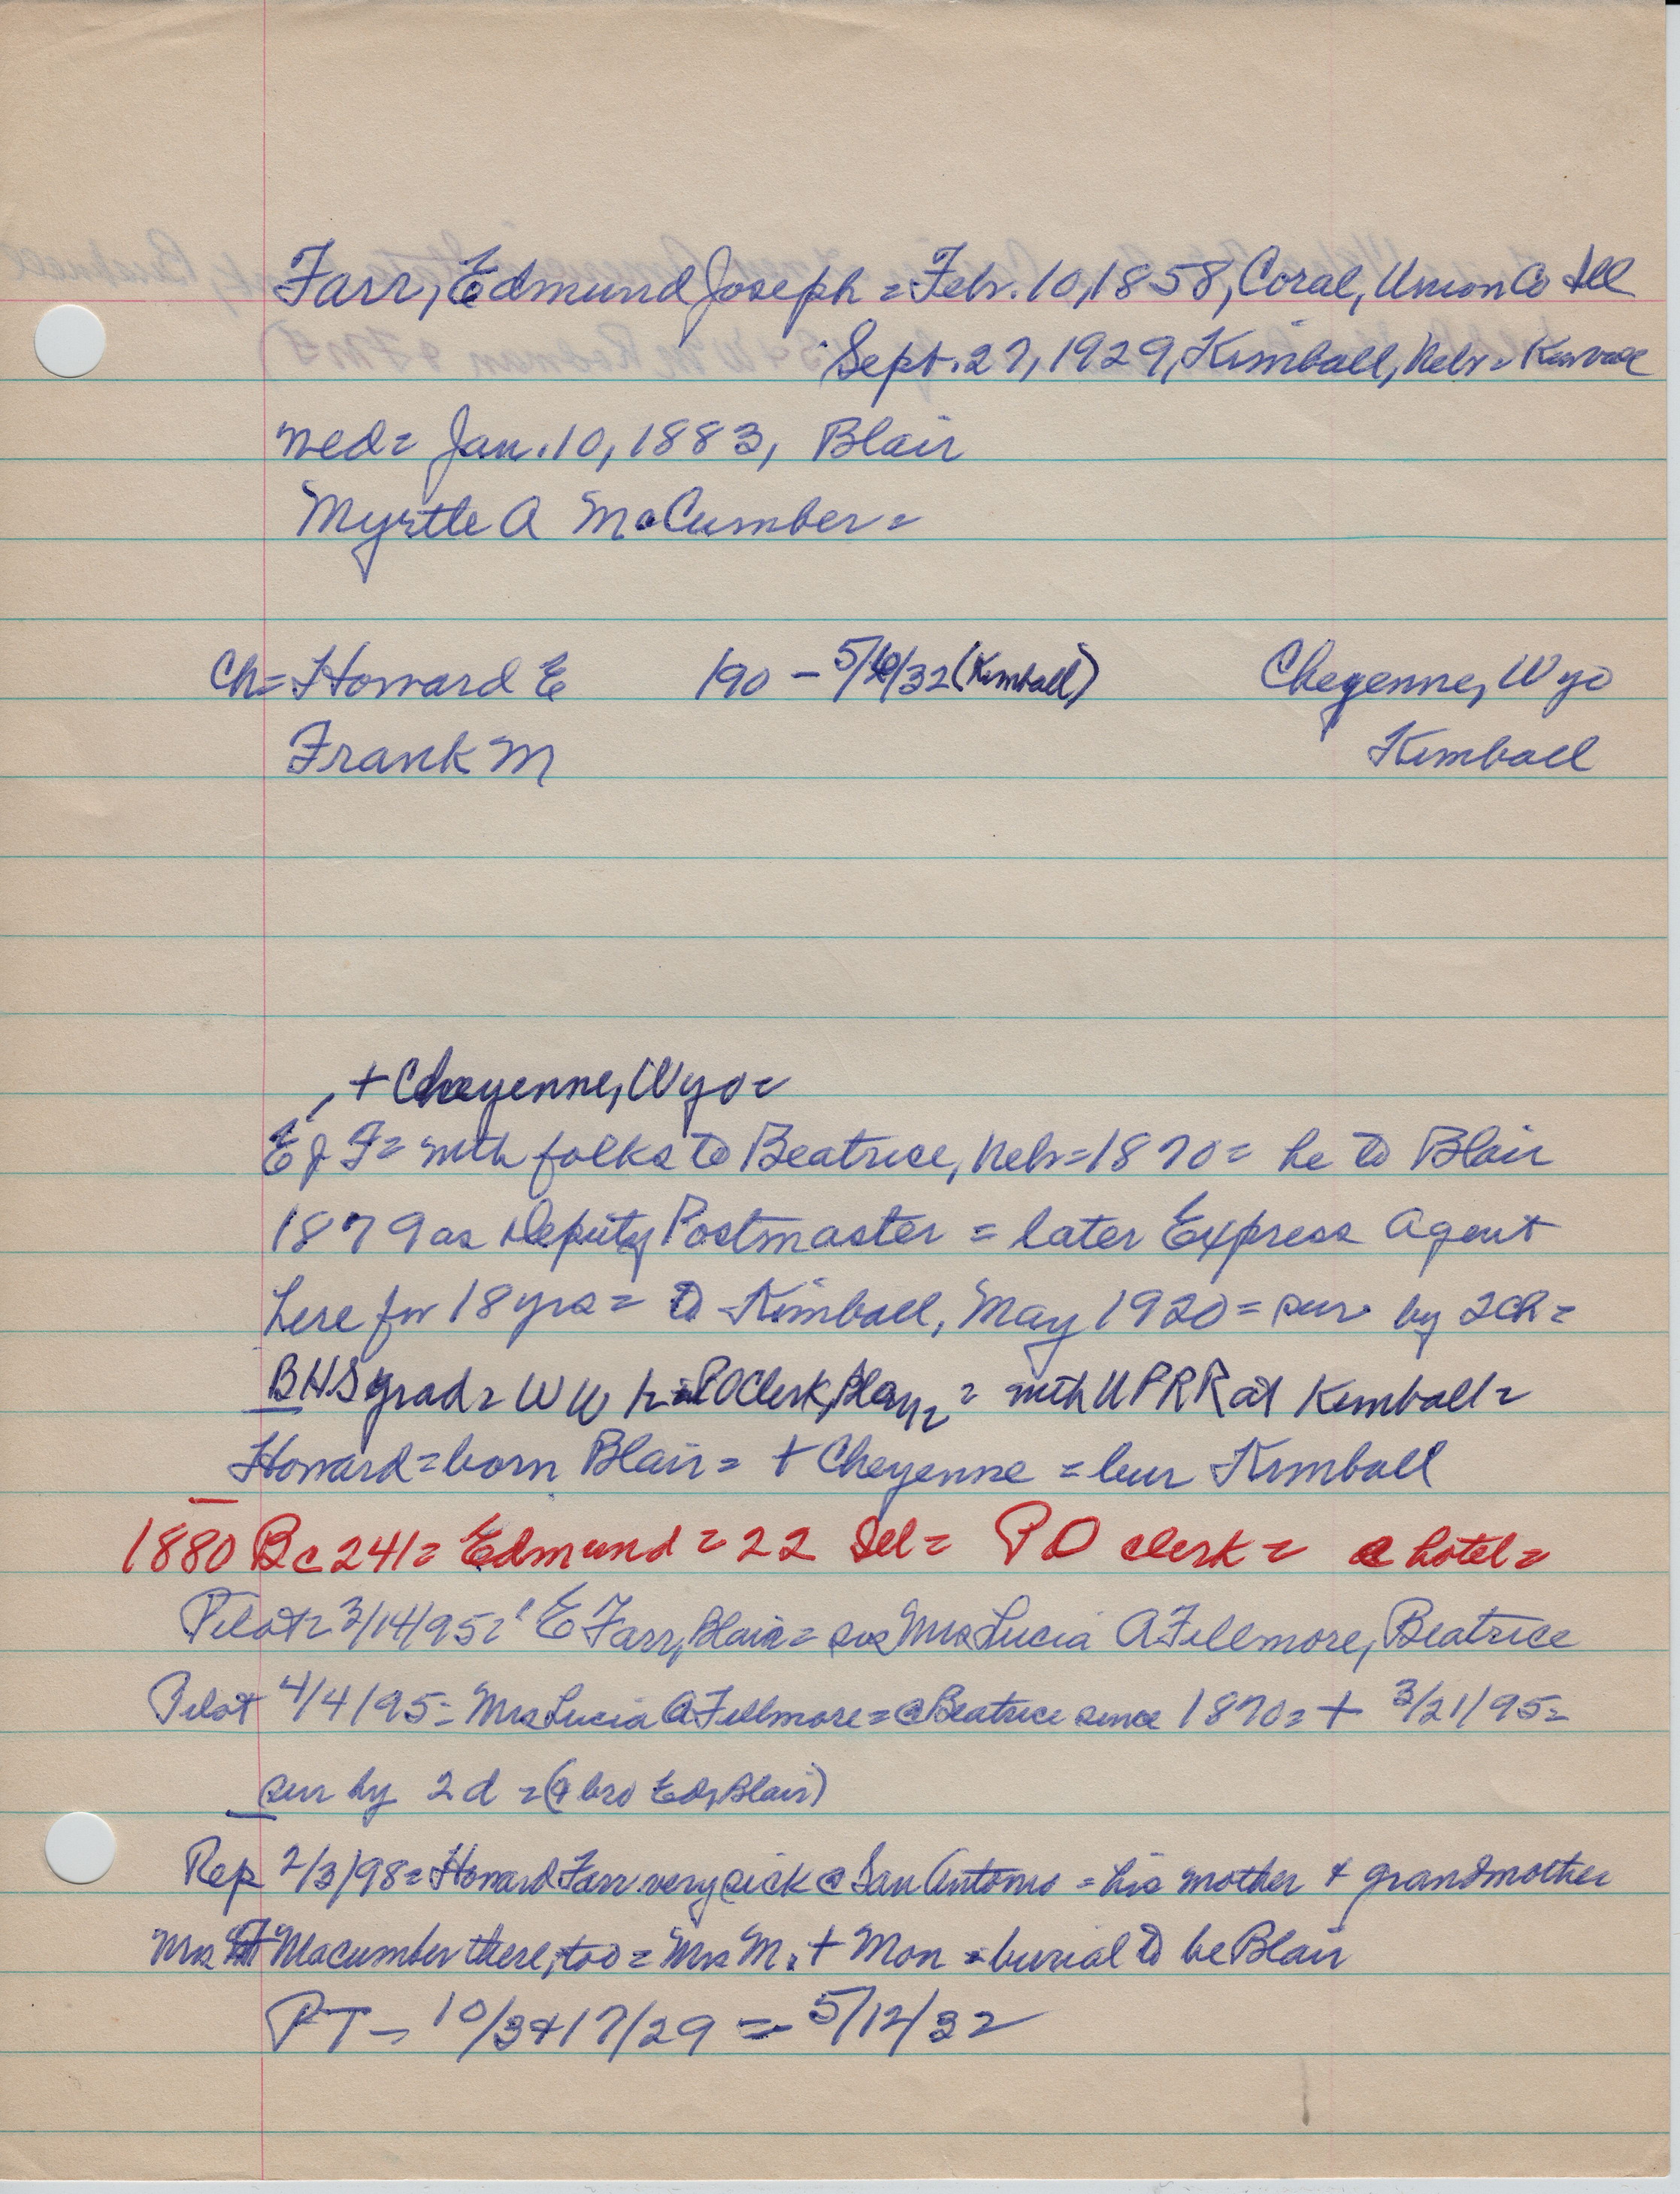 Farr, Edmund Joseph = Feb. 10, 1858, Coral, Union Co Ill
Sept. 27, 1929, Kimball, Nebr =
med = Jan. 10, 1883, Blair
Myrtle A McCumber =
Ch = Howard E 190 - 5/ /32 (Kimball) Cheyenne, Wyo
Frank M Kimball
+ Cheyenne, Wyo =
E J F = with folks to Beatrice, Nebr = 1870 = he to Blair
1879 as Deputy Postmaster = later Express Agent
here for 18 yrs = to Kimball, May 1920 = sur by 2 ch =
BHS grad = WW I = PO Clerk, = with UPRR at Kimball =
Howard = born Blair = + Cheyenne = bur Kimball
1880 Bc 241 = Edmund = 22 Ill = PO clerk = @ hotel =
Pilot = 3/14/95 = E Farr, Blair = sis Mrs Lucia A Fillmore, Beatrice
Pilot 4/4/95 = Mrs Lucia A Fillmore = @ Beatrice since 1870 = + 3/21/95 =
sur by 2 d = (& bro Ed, Blair)
Rep 2/3/98 = Howard Farr very sick @ San Antonio = his mother & grandmother
Mrs Macumber there, too = Mrs M. + Mon = burial to be Blair
PT - 10/3 & 17/29 = 5/12/32